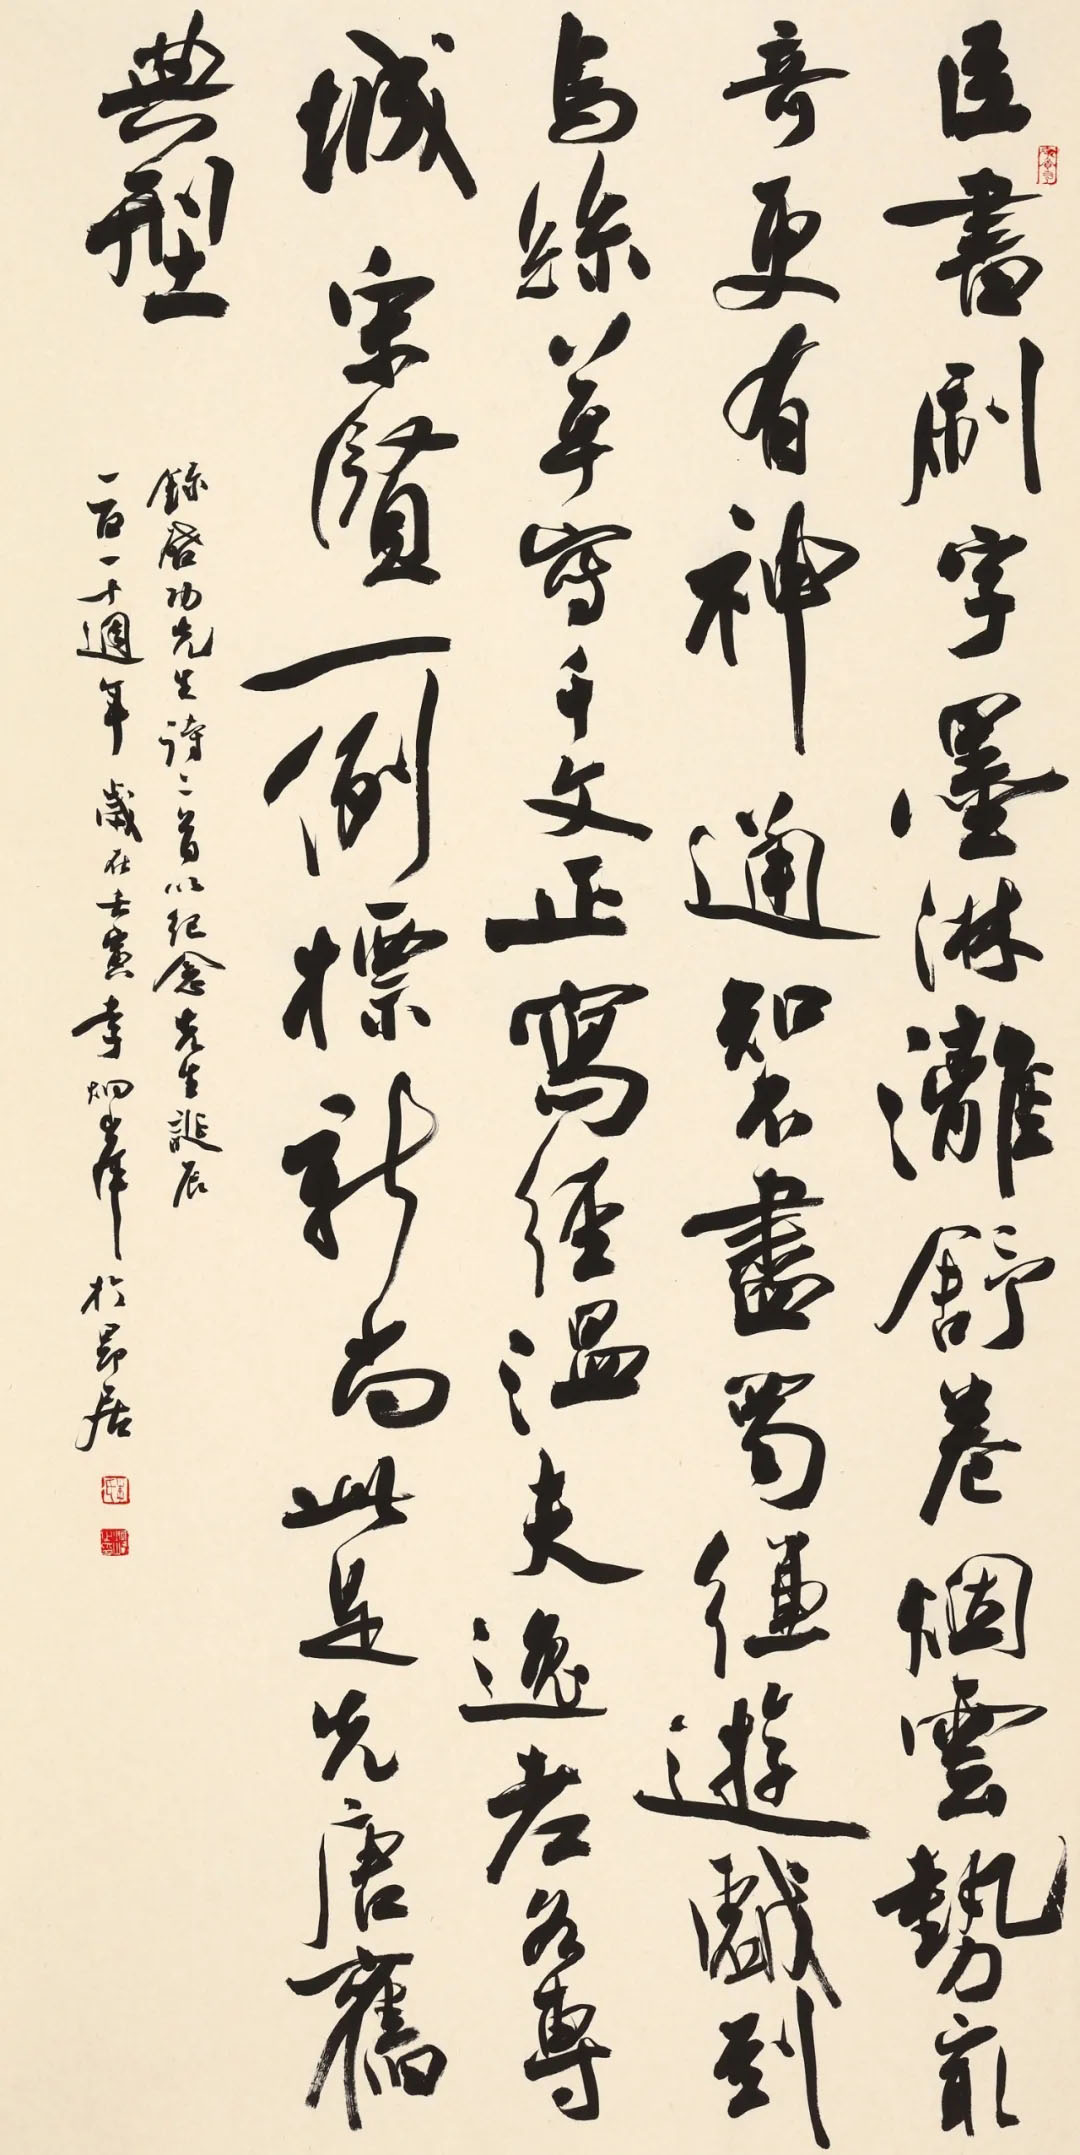 臣書刷字墨淋灕舒卷烟雲勢最
奇更有神通知不盡蜀縑遊戲到
烏絲草寫千文正寫經温夫逸老各專
城宋賢一例標新尚此是先唐舊
典型
錄啓功先生詩二首以紀念先生誕辰
一百一十週年歲在壬寅李炯峯於居